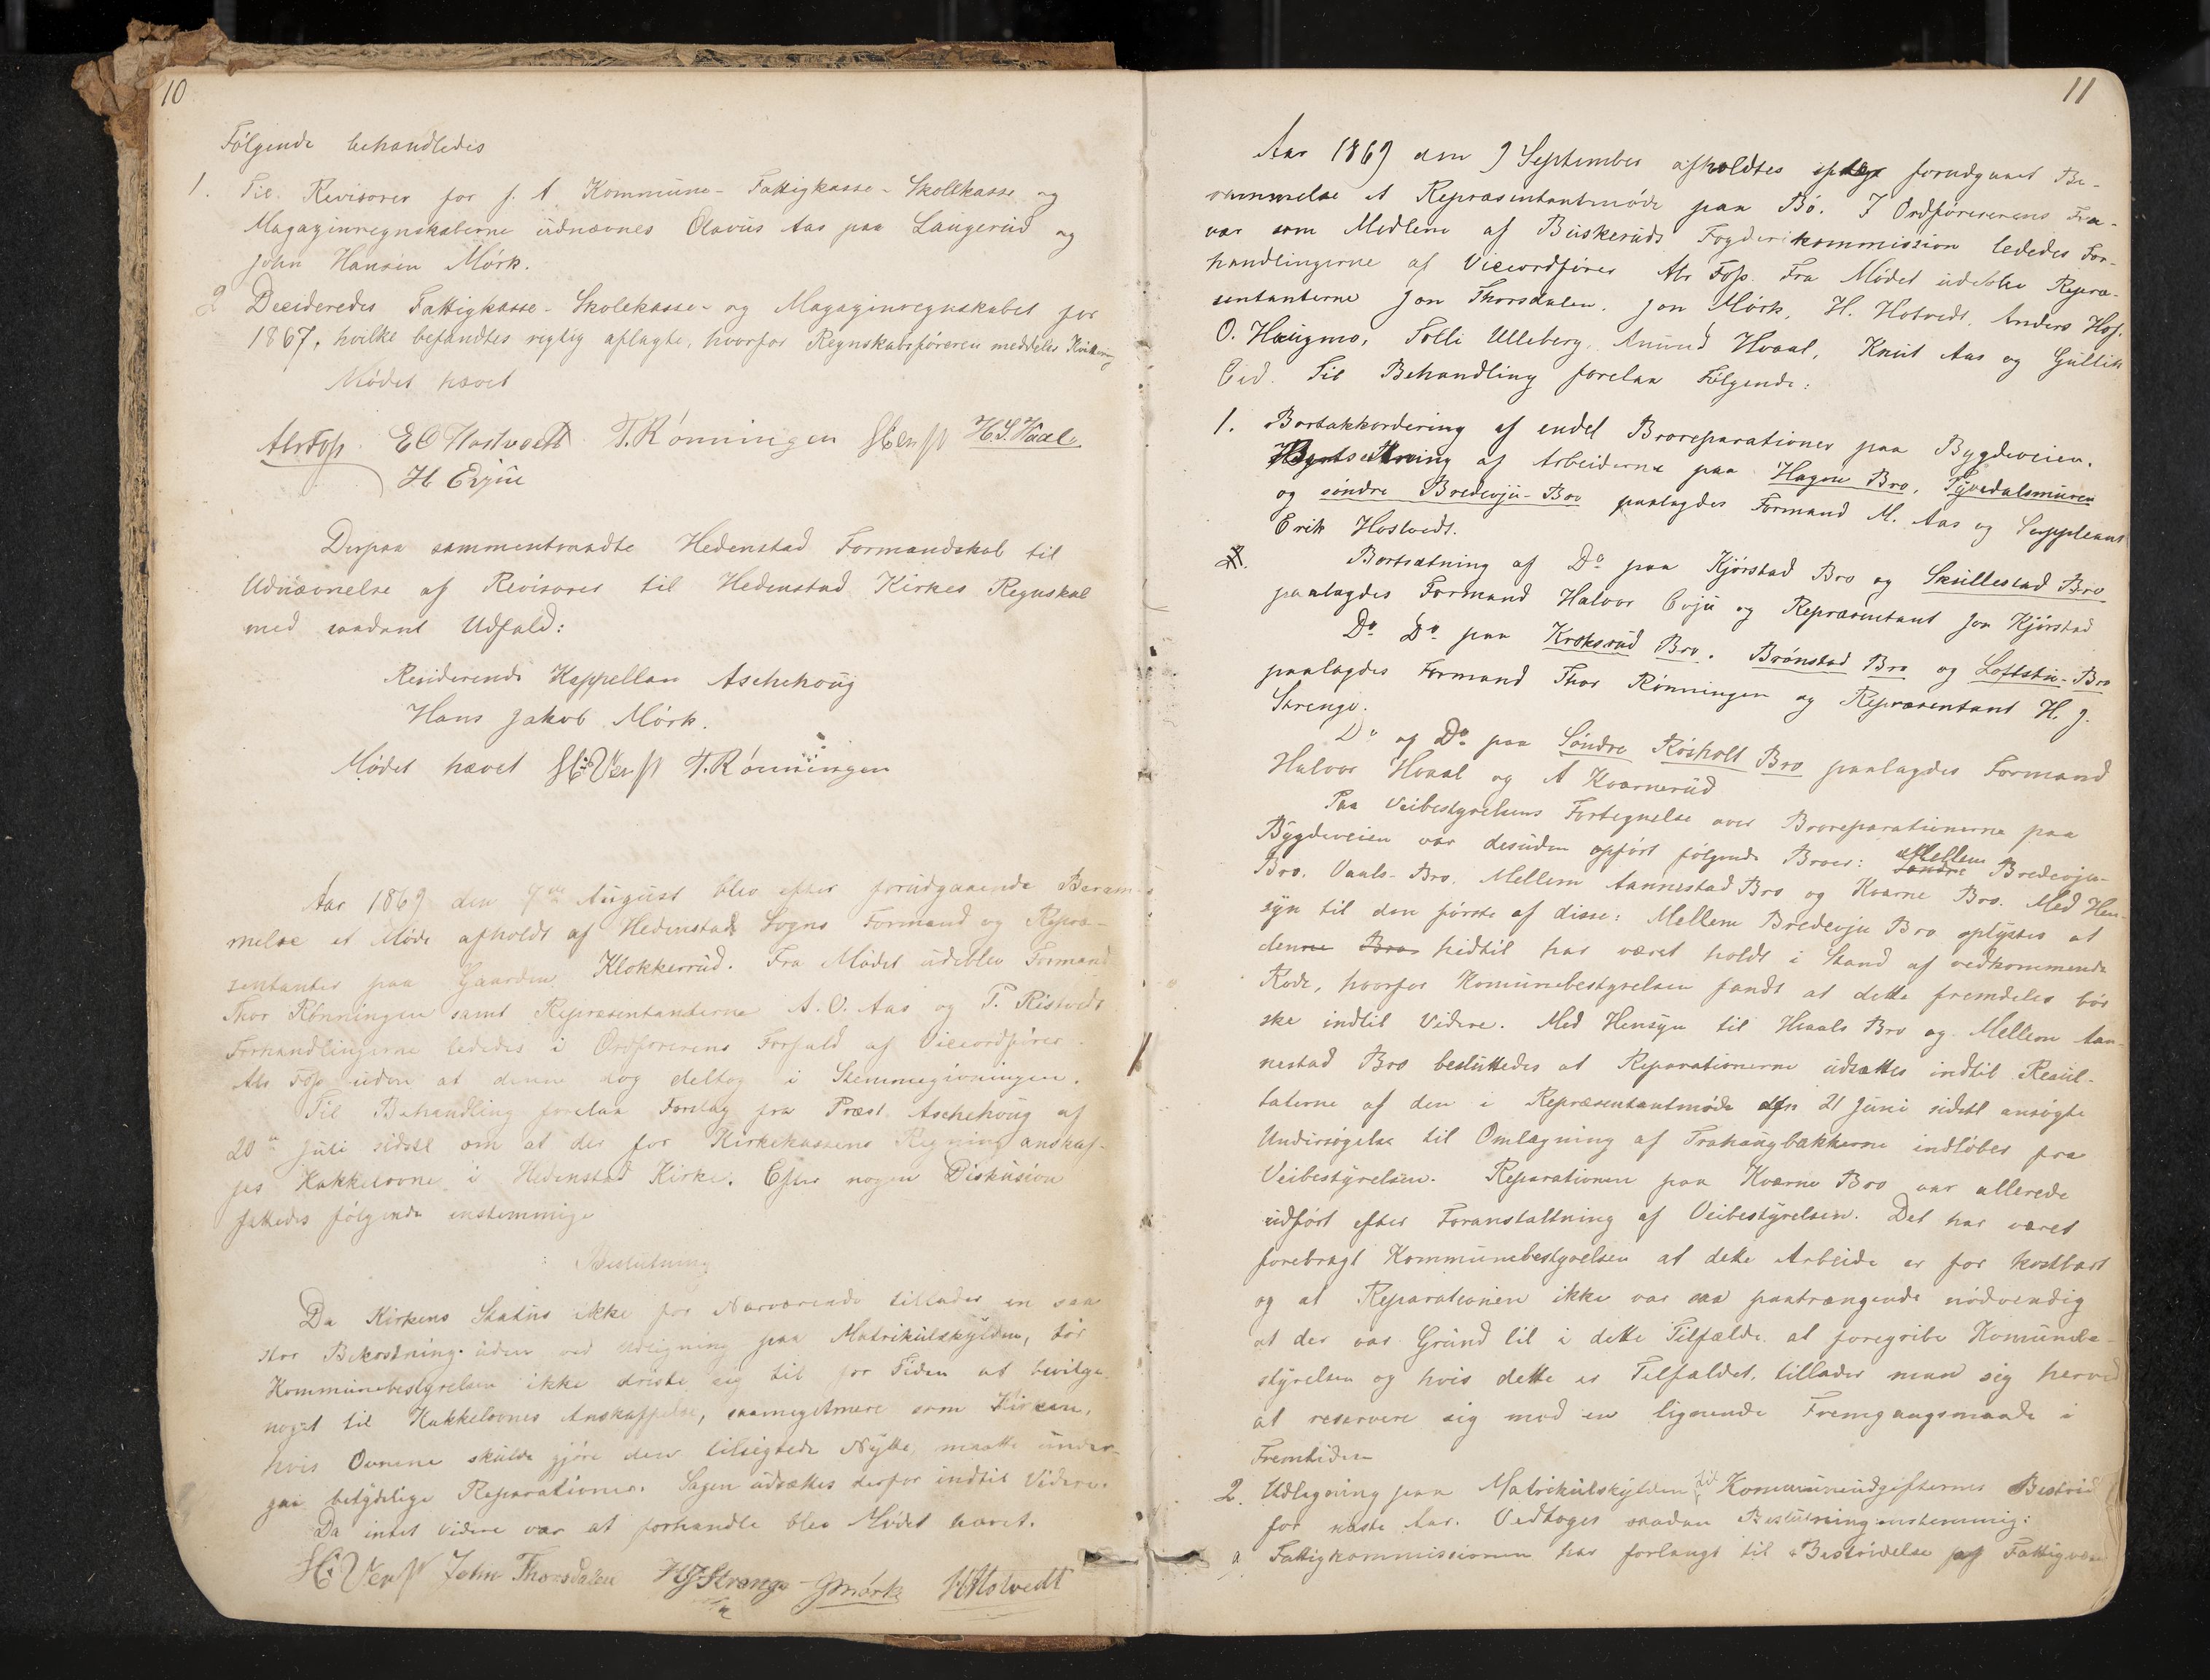 10
Følgende behandledes
1. Til Revisorer for f. A. Kommune- Fattigkasse- Skolekasse og
Magazinregnskaberne udnævnes Olavus Aas paa Laugerud og
John Hansen Mørk.
2 Decideredes Fattigkasse- Skolekasse- og Magazinregnskabet for
1867, hvilke befandtes rigtig aflagte, hvorfor Regnskabsføreren meddeles Kvittering
Mødet hævet
Abr Fos. E O Hostvedt T. Rönningen H. S. Hvaal
H Evju
Derpaa sammentraadte Hedenstad Formandskab til
Udnævnelse af Revisorer til Hedenstad Kirkes Regnskab
med saadant Udfald:
Residerende Kappellan Aschehoug
Hans Jakob Mørk.
Mødet hævet T. Rönningen
Aar 1869 den August blev efter forudgaaende Beram-
melse et Møde afholdt af Hedenstads Sogns Formænd og Repræ-
sentanter paa Gaarden Klokkerrud. Fra Mødet udeblev Formand
Thor Rønningen samt Repræsentanterne A. O. Aas og P. Ristvedt
Forhandlingerne lededes i Ordførerens Forfald af Viceordfører
Abr Fos uden at denne dog deltog i Stemmegivningen.
Til Behandling forelaa Forslag fra Præst Aschehoug af
20de Juli sidstl om at der for Kirkekassens Regning anskaf-
fes Kakkelovne i Hedenstad Kirke. Efter nogen Diskusion
fattedes følgende enstemmige
Beslutning
Da Kirkens Status ikke for Nærværende tillader en saa
stor Bekostning uden ved Udligning paa Matrikulskylden, tør
Kommunebestyrelsen ikke driste sig til for Tiden at bevilge
noget til Kakkelovnes Anskaffelse, saameget mere som Kirken,
hvis Ovnene skulde gjøre den tilsigtede Nytte, maatte under-
gaa betydelige Reparationer. Sagen udsættes derfor indtil Videre.
Da intet videre var at forhandle blev Mødet hævet.
John Thorsdalen HJStrenge JMørk HHotvedt
11
Aar 1869 den 9 September afholdtes efter forudgaaet Be-
rammelse et Repræsentantmøde paa Bø. I Ordførerens Fra-
vær som Medlem af Buskeruds Fogderikommission lededes For-
handlingerne af Viceordfører Abr Fos. Fra Mødet udeblev Repræ-
sentanterne Jon Thorsdalen, Jon Mørk, H. Hotvedt, Anders Hof,
O. Haugmo, Tolli Ulleberg, Amund Hvaal, Knut Aas og Gullik
Eid. Til Behandling forelaa Følgende:
1. Bortakkordering af endel Broreparationer paa Bygdeveien.
Bortsætning af Arbeiderne paa Hagen Bro, Tyvedalsmuren
og søndre Bredevju-Bro paalagdes Formand M. Aas og Suppleant
Erik Hostvedt.
Bortsætning af Do paa Kjørstad Bro og Skullestad Bro
paalagdes Formand Halvor Evju og Repræsentant Jon Kjørstad
Do Do paa Kroksrud Bro, Brønstad Bro og Loftstu-Bro
paalagdes Formand Thor Rønningen og Repræsentant H. J.
Strenge.
Do af Do paa Søndre Røsholt Bro paalagdes Formand
Halvor Hvaal og A Kvarnerud
Paa Veibestyrelsens Fortegnelse over Broreparationerne paa
Bygdeveien var desuden opført følgende Broer: Mellem Bredevju-
Bro, Vaals-Bro, Mellem Aannestad Bro og Kværne Bro. Med Hen-
syn til den første af disse: Mellem Bredevju Bro oplystes at
denne Bro hidtil har været holdt i Stand af vedkommende
Rode, hvorfor Komunebestyrelsen fandt at dette fremdeles bør
ske indtil Videre. Med Hensyn til Hvaals Bro og Mellem Aan-
nestad Bro besluttedes at Reparationerne udsættes indtil Resul-
taterne af den i Repræsentantmøde den 21 Juni sidstl ansøgte
Undersøgelse til Omlægning af Trahaugbakkerne indløber fra
Veibestyrelsen. Reparationen paa Kværne Bro var allerede
udført efter Foranstaltning af Veibestyrelsen. Det har været
forebragt Kommunebestyrelsen at dette Arbeide er for kostbart
og at Reparationen ikke var saa paatrængende nødvendig
at der var Grund til i dette Tilfælde at foregribe Komunebe-
styrelsen og hvis dette er Tilfældet, tillader man sig herved
at reservere sig mod en lignende Fremgangsmaade i
Fremtiden
2. Udligning paa Matrikulskylden til Kommuneudgifternes Bestrid
for næste Aar. Vedtoges saadan Beslutning enstemmig:
a Fattigkommissionen har forlangt til Bestridelse af Fattigvæs